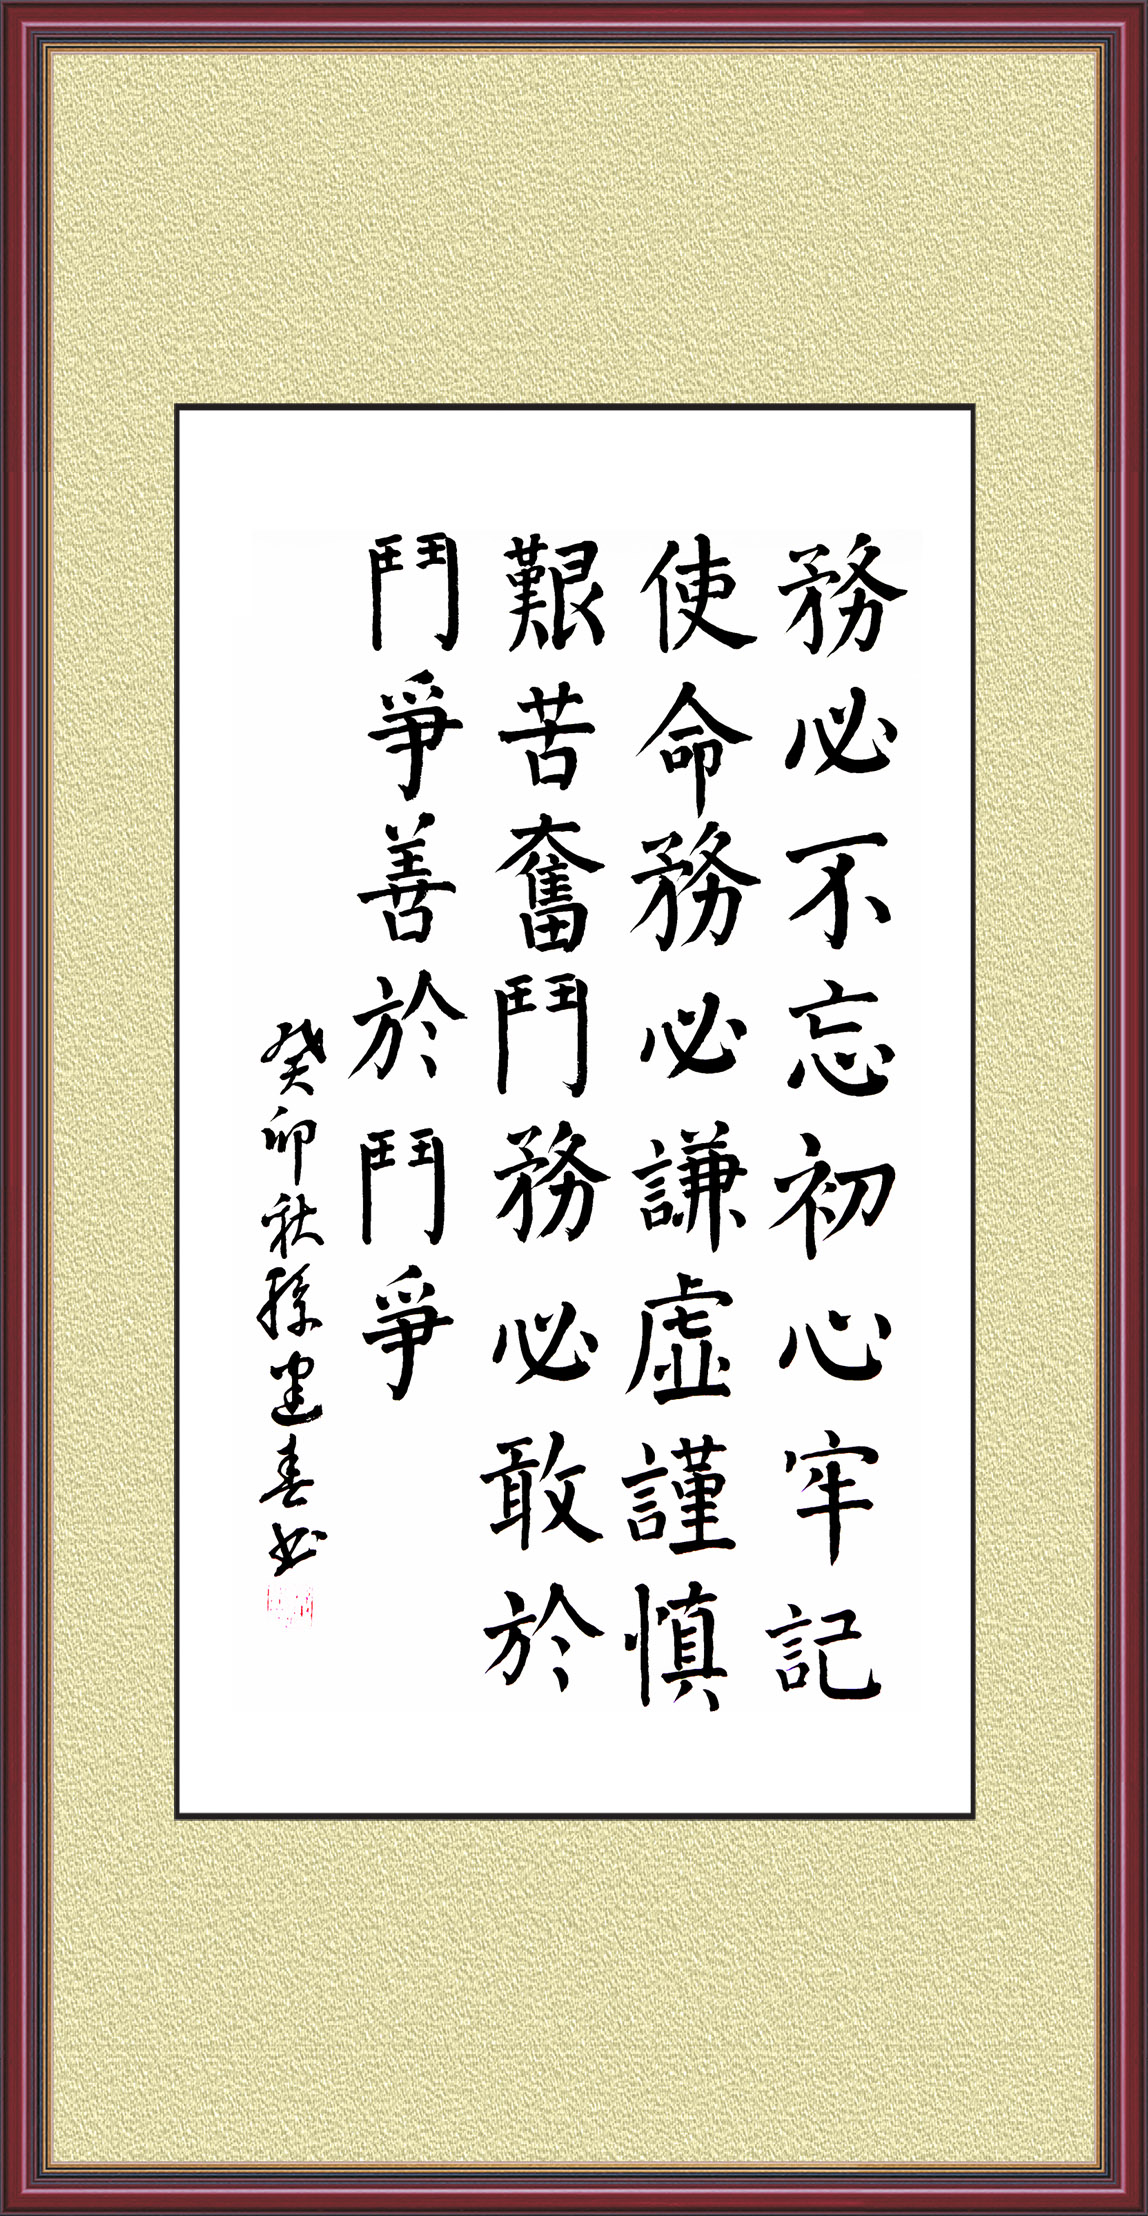 務必不忘初心牢記
使命務必謙虛謹慎
艱苦奮鬥務必敢於
鬥爭善於鬥爭
癸卯秋孫建春书